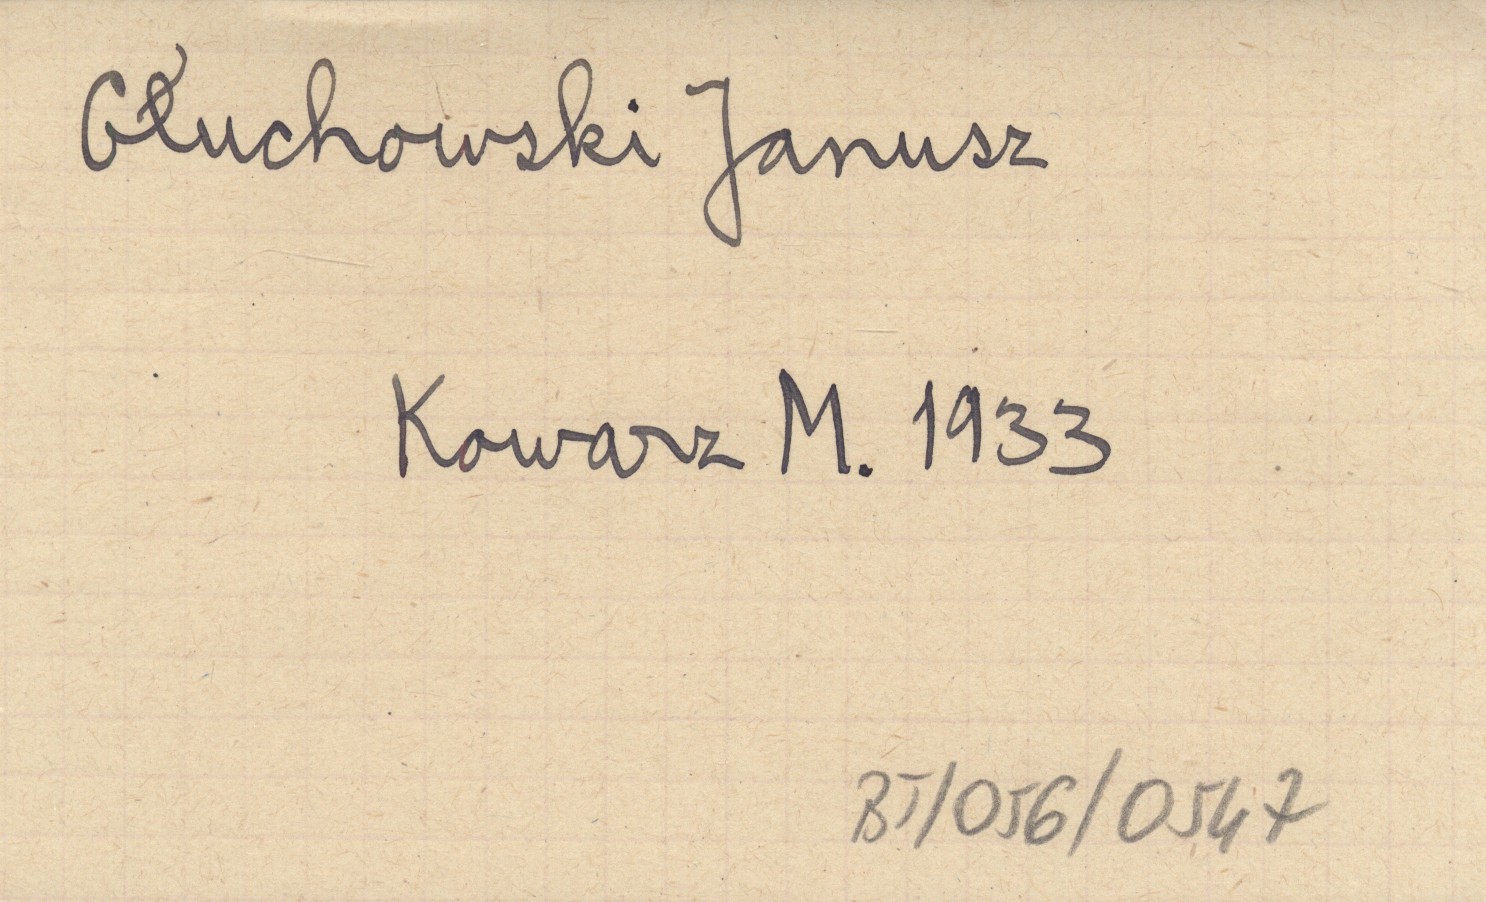 Głuchowski Janusz
Kowarz M. 1933
BJ/056/0547